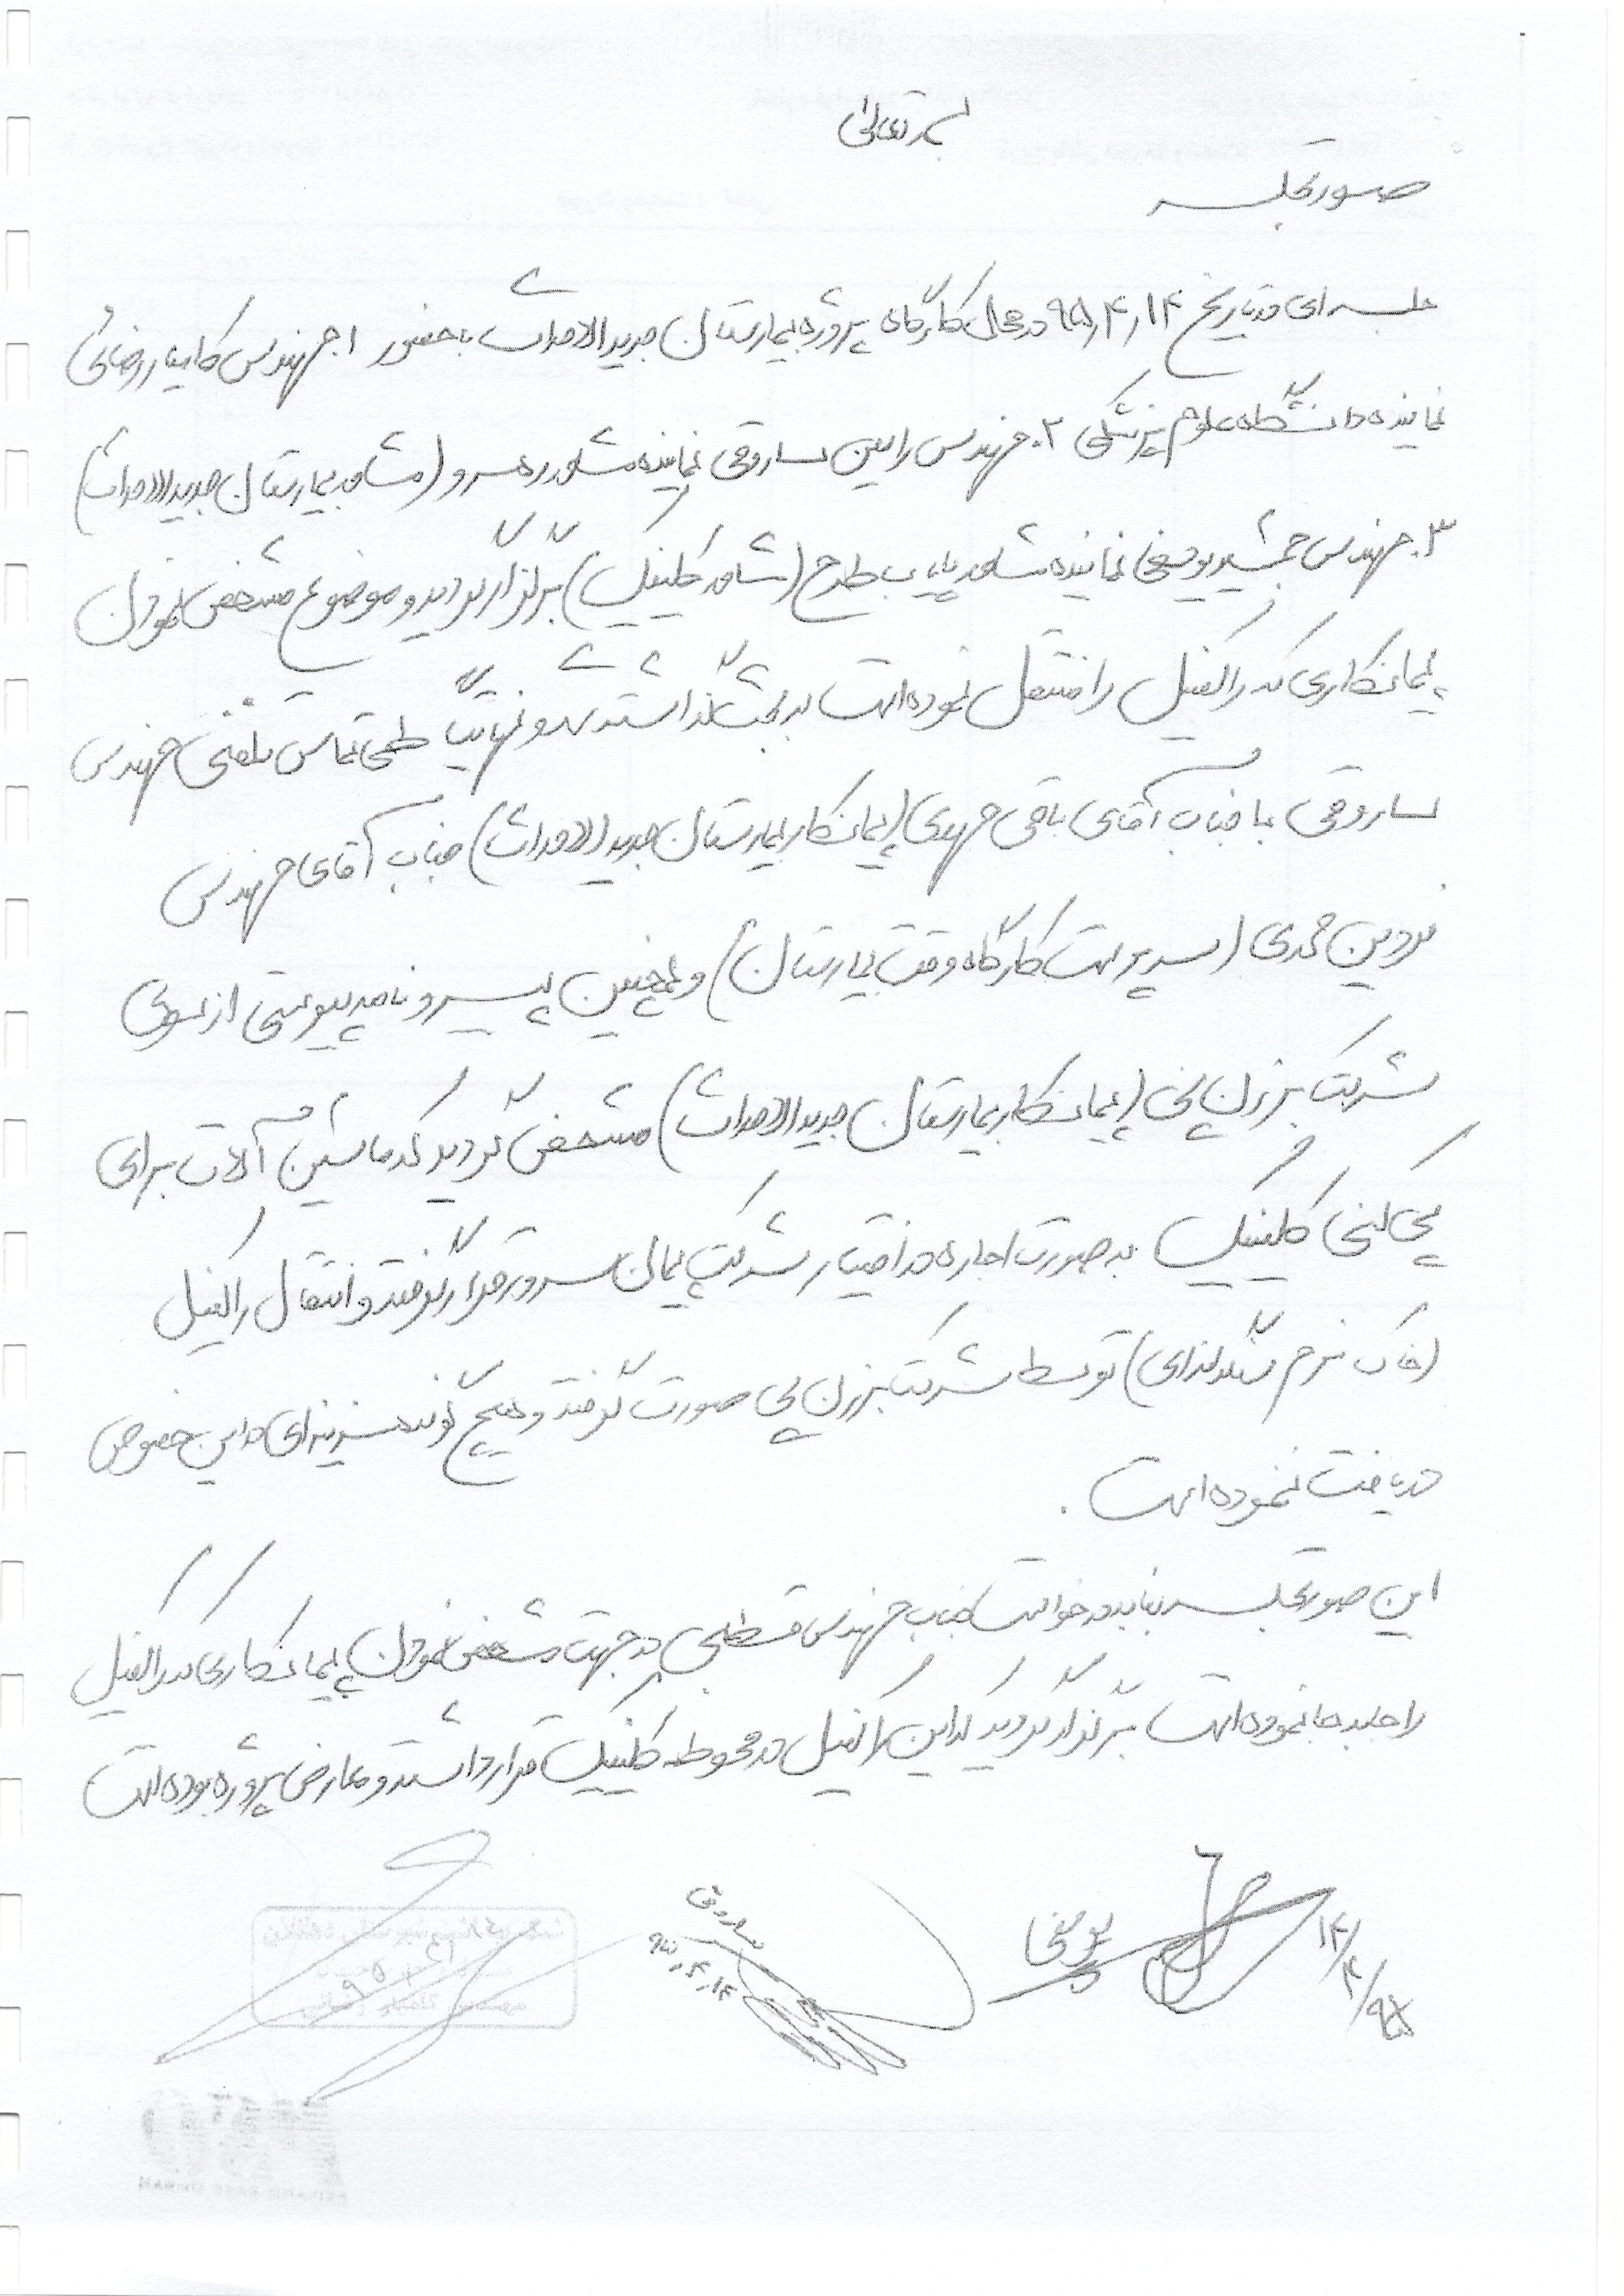 بسمه تعالی
صورتجلسه
جلسه ای در تاریخ ۹۵٫۴٫۱۴ در محل کارگاه پروژه بیمارستان جدیدالاحداث با حضور ۱. مهندس کامیار رضائی
نماینده دانشگاه علوم پزشکی ۲. مهندس رامین ساروقی نماینده مشاور ره سرو (مشاور بیمارستان جدیدالاحداث)
۳. مهندس جمشید یوسفی نماینده مشاور پایاب طرح (مشاور کلینیک) برگزار گردید و موضوع مشخص نمودن
پیمانکاری که راکفیل را منتقل نموده است به بحث گذاشته شد و نهایتاً طی تماس تلفنی مهندس
ساروقی با جناب آقای باقی مهدی (پیمانکار بیمارستان جدیدالاحداث) جناب آقای مهندس
فردین محمدی (سرپرست کارگاه وقت بیمارستان) و همچنین پیرو نامه پیوستی از سوی
شرکت برزن پی (پیمانکار بیمارستان جدیدالاحداث) مشخص گردید که ماشین آلات برای
پی کنی کلینیک به صورت اجاره در اختیار شرکت پیمان سرور قرار گرفته و انتقال راکفیل
(خاک نرم سنگدانه ای) توسط شرکت برزن پی صورت گرفته و هیچ گونه هزینه ای در این خصوص
دریافت ننموده است.
این صورتجلسه بنا به درخواست جناب مهندس قسطلی در جهت مشخص نمودن پیمانکاری که راکفیل
را جابه جا نموده است برگزار گردید که این راکفیل در محوطه کلینیک قرار داشته و معارض پروژه بوده است
یوسفی
۹۵/۴/۱۴
ساروقی
۹۵٫۴٫۱۴